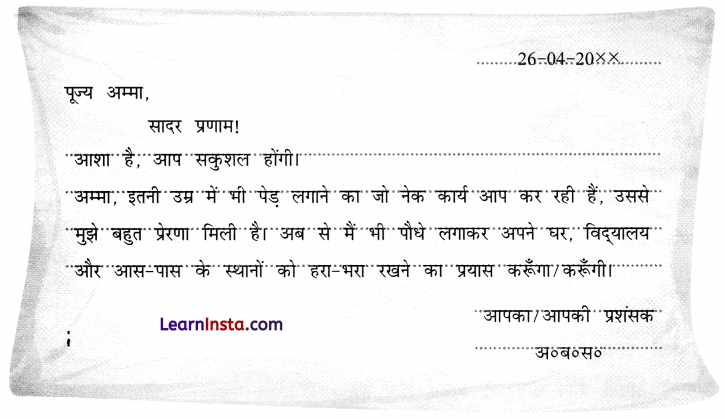 26-04-20××
पूज्य अम्मा,
सादर प्रणाम!
आशा है, आप सकुशल होंगी।
अम्मा, इतनी उम्र में भी पेड़ लगाने का जो नेक कार्य आप कर रही हैं, उससे
मुझे बहुत प्रेरणा मिली है। अब से मैं भी पौधे लगाकर अपने घर, विद्यालय
और आस-पास के स्थानों को हरा-भरा रखने का प्रयास करूँगा/करूँगी।
आपका/आपकी प्रशंसक
LearnInsta.com
अ०ब०स०